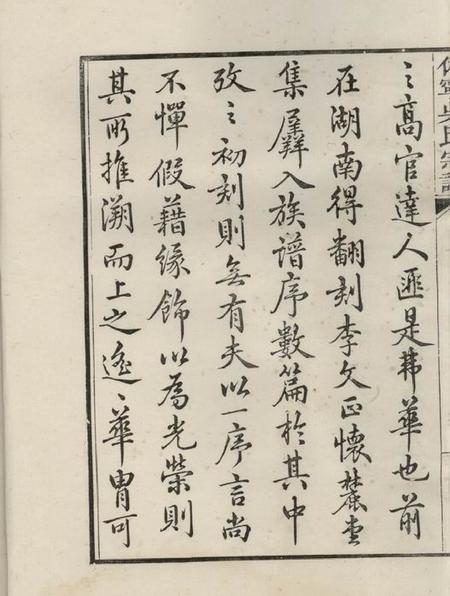 之高官達人匪是弗華也前
在湖南得翻刻李文正懷麓堂
集羼入族譜序數篇於其中
攷之初刻則無有夫以一序言尚
不憚假藉緣飾以為光榮則
其所推溯而上之遙〻華胄可